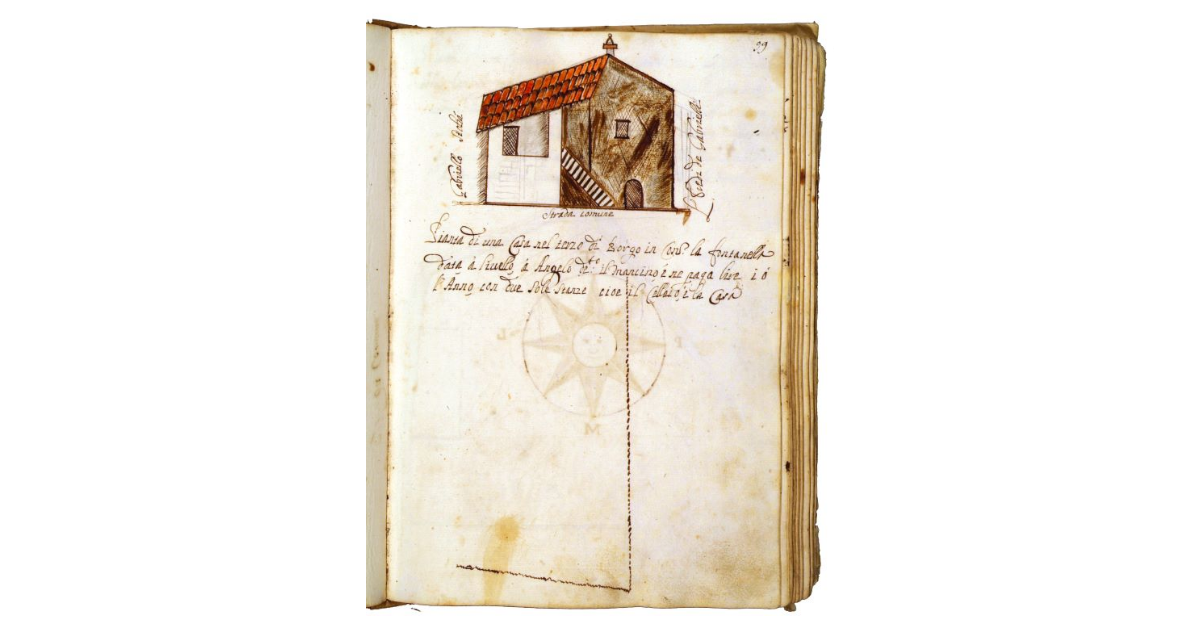 39
Gabriello
Strada comune
Eredi di Gabriello
Pianta di una Casa nel terzo di Borgo in Cont.ª la fontanella
data à livello à Angelo d.º il mancino è ne paga lire i o
l'Anno con due sole stanze cioe il Cellaro, è la Casa
M